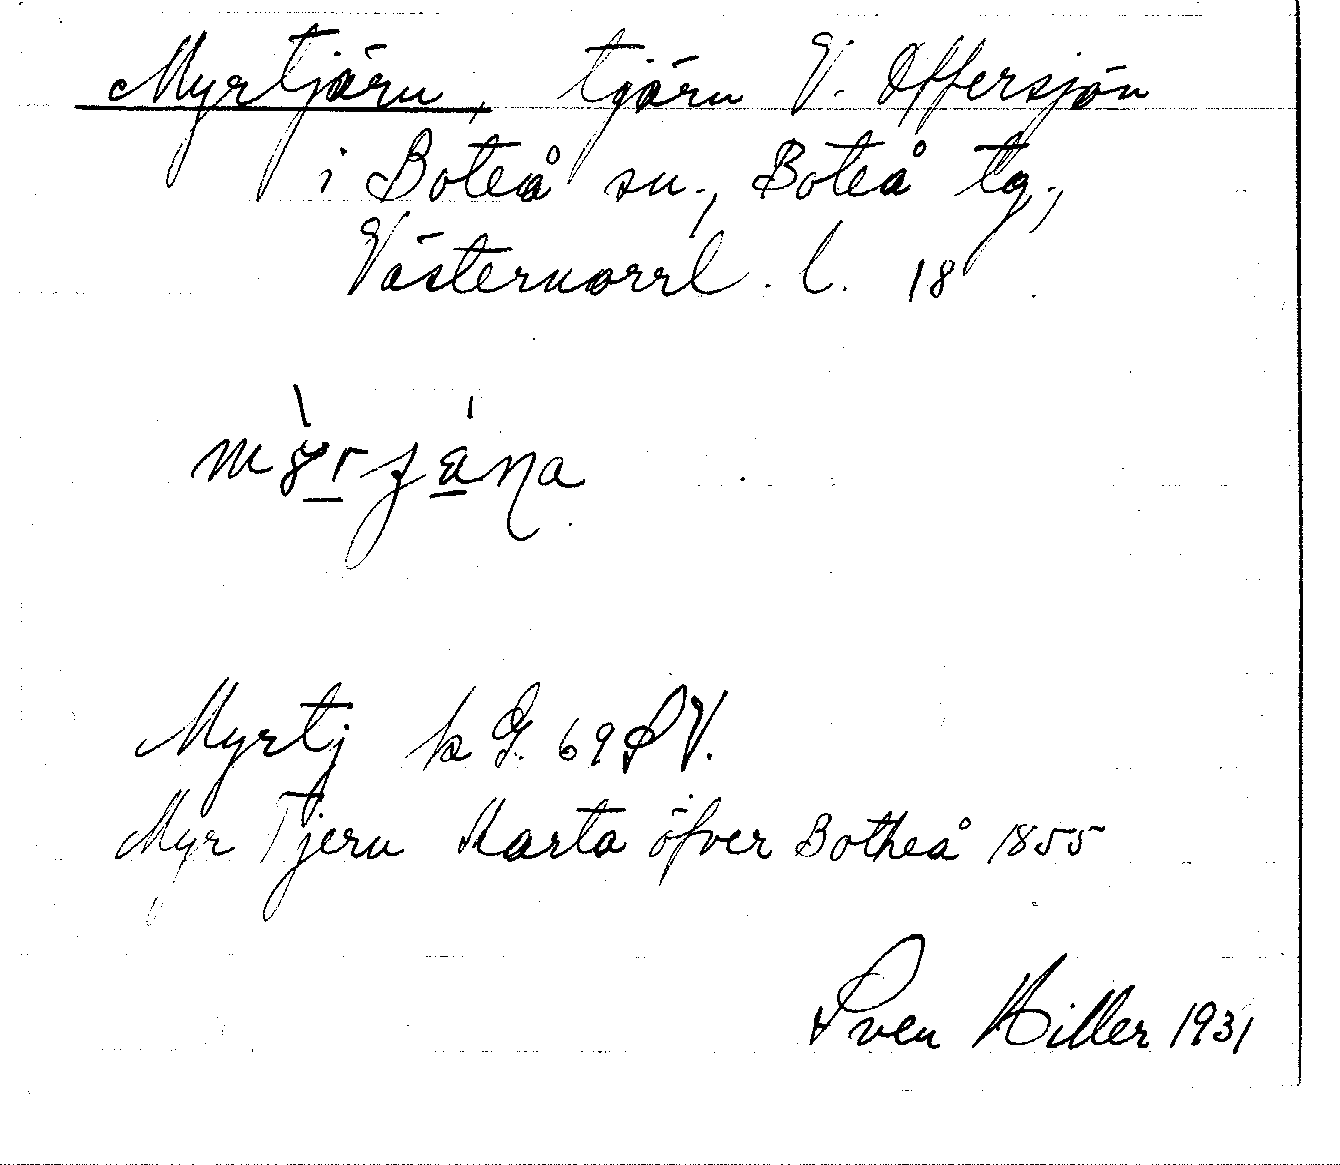 Myrtjärn, tjärn V. Offersjön
i Boteå sn., Boteå tg.,
Västernorrl. l. 18
Myrtj k G. 69 SV.
Myr Tjern Karta öfver Botheå 1855
Sven Hiller 1931